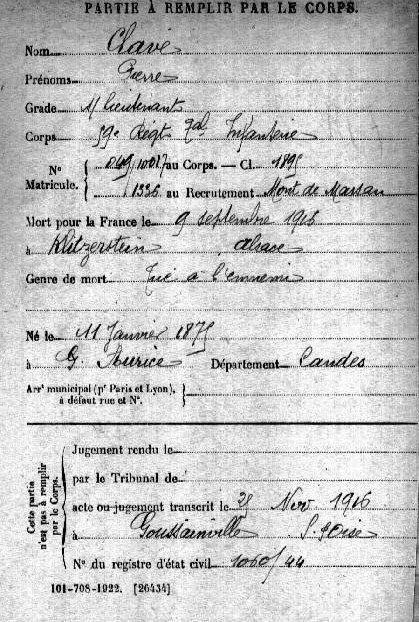 PARTIE À REMPLIR PAR LE CORPS.
Nom Clavé
Prénoms Pierre
Grade S/ lieutenant
Corps Régt d'Infanterie
N° Matricule. { au Corps. — Cl. 1895
1336 au Recrutement Mont de Marsan
Mort pour la France le 9 septembre 1916
à Alsace
Genre de mort Tué à l'ennemi
Né le 11 Janvier 1875
à Département Landes
Arrt municipal (pr Paris et Lyon), à défaut rue et N°.
Cette partie n'est pas à remplir par le Corps.
Jugement rendu le
par le Tribunal de
acte ou jugement transcrit le Nov 1916
à Goussainville S. & Oise
N° du registre d'état civil 1060/44
101-708-1922. [26434]